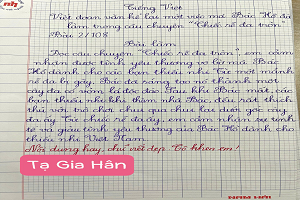 Tiếng Việt
Viết đoạn văn kể lại một việc mà Bác Hồ đã
làm trong câu chuyện "Chiếc rễ đa tròn".
Bài 2/108
Bài làm
Đọc câu chuyện "Chiếc rễ đa tròn", em cảm
nhận được tình yêu thương vô bờ mà Bác
Hồ dành cho các bạn thiếu nhi. Từ một mảnh
rễ đa bị gãy, Bác đã sáng tạo nó thành một
cây đa có vòm lá độc đáo. Sau khi Bác mất, các
bạn thiếu nhi khi thăm nhà Bác, đều rất thích
thú với trò chơi chui qua chui lại dưới gốc cây
đa ấy. Từ chiếc rễ đa ấy, em cảm nhận sự tinh
tế và giàu tình yêu thương của Bác Hồ dành cho
thiếu nhi Việt Nam.
Nội dung hay, chữ viết đẹp. Cô khen em!
Tạ Gia Hân